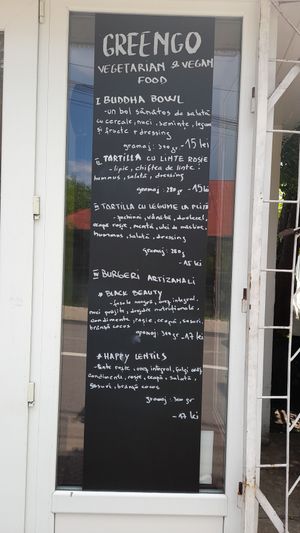 GREENGO
VEGETARIAN & VEGAN
FOOD
I BUDDHA BOWL
-un bol sănătos de salată
cu cereale, nuci, semințe, legume
și fructe + dressing
gramaj: 300gr -15 lei
II TORTILLA CU LINTE ROȘIE
- lipie, chiftea de linte
humus, salată, dressing
gramaj: 280gr -15 lei
TORTILLA CU LEGUME LA
vânătă, dovlecel,
ceapă roșie, mentă, ulei de măsline,
hummus, salată, dressing
gramaj: 280g
-15 lei
III BURGERI ARTIZANALI
* BLACK BEAUTY
-fasole neagră, orez integral,
nuci prăjite, drojdie nutrițională,
condimente, roșie, ceapă, sosuri,
brânză cocos
gramaj: 300gr -17 lei
* HAPPY LENTILS
-linte roșie, orez integral, fulgi
condimente, roșie, ceapă, salată,
sosuri, brânză cocos
gramaj: 300gr
-17 lei